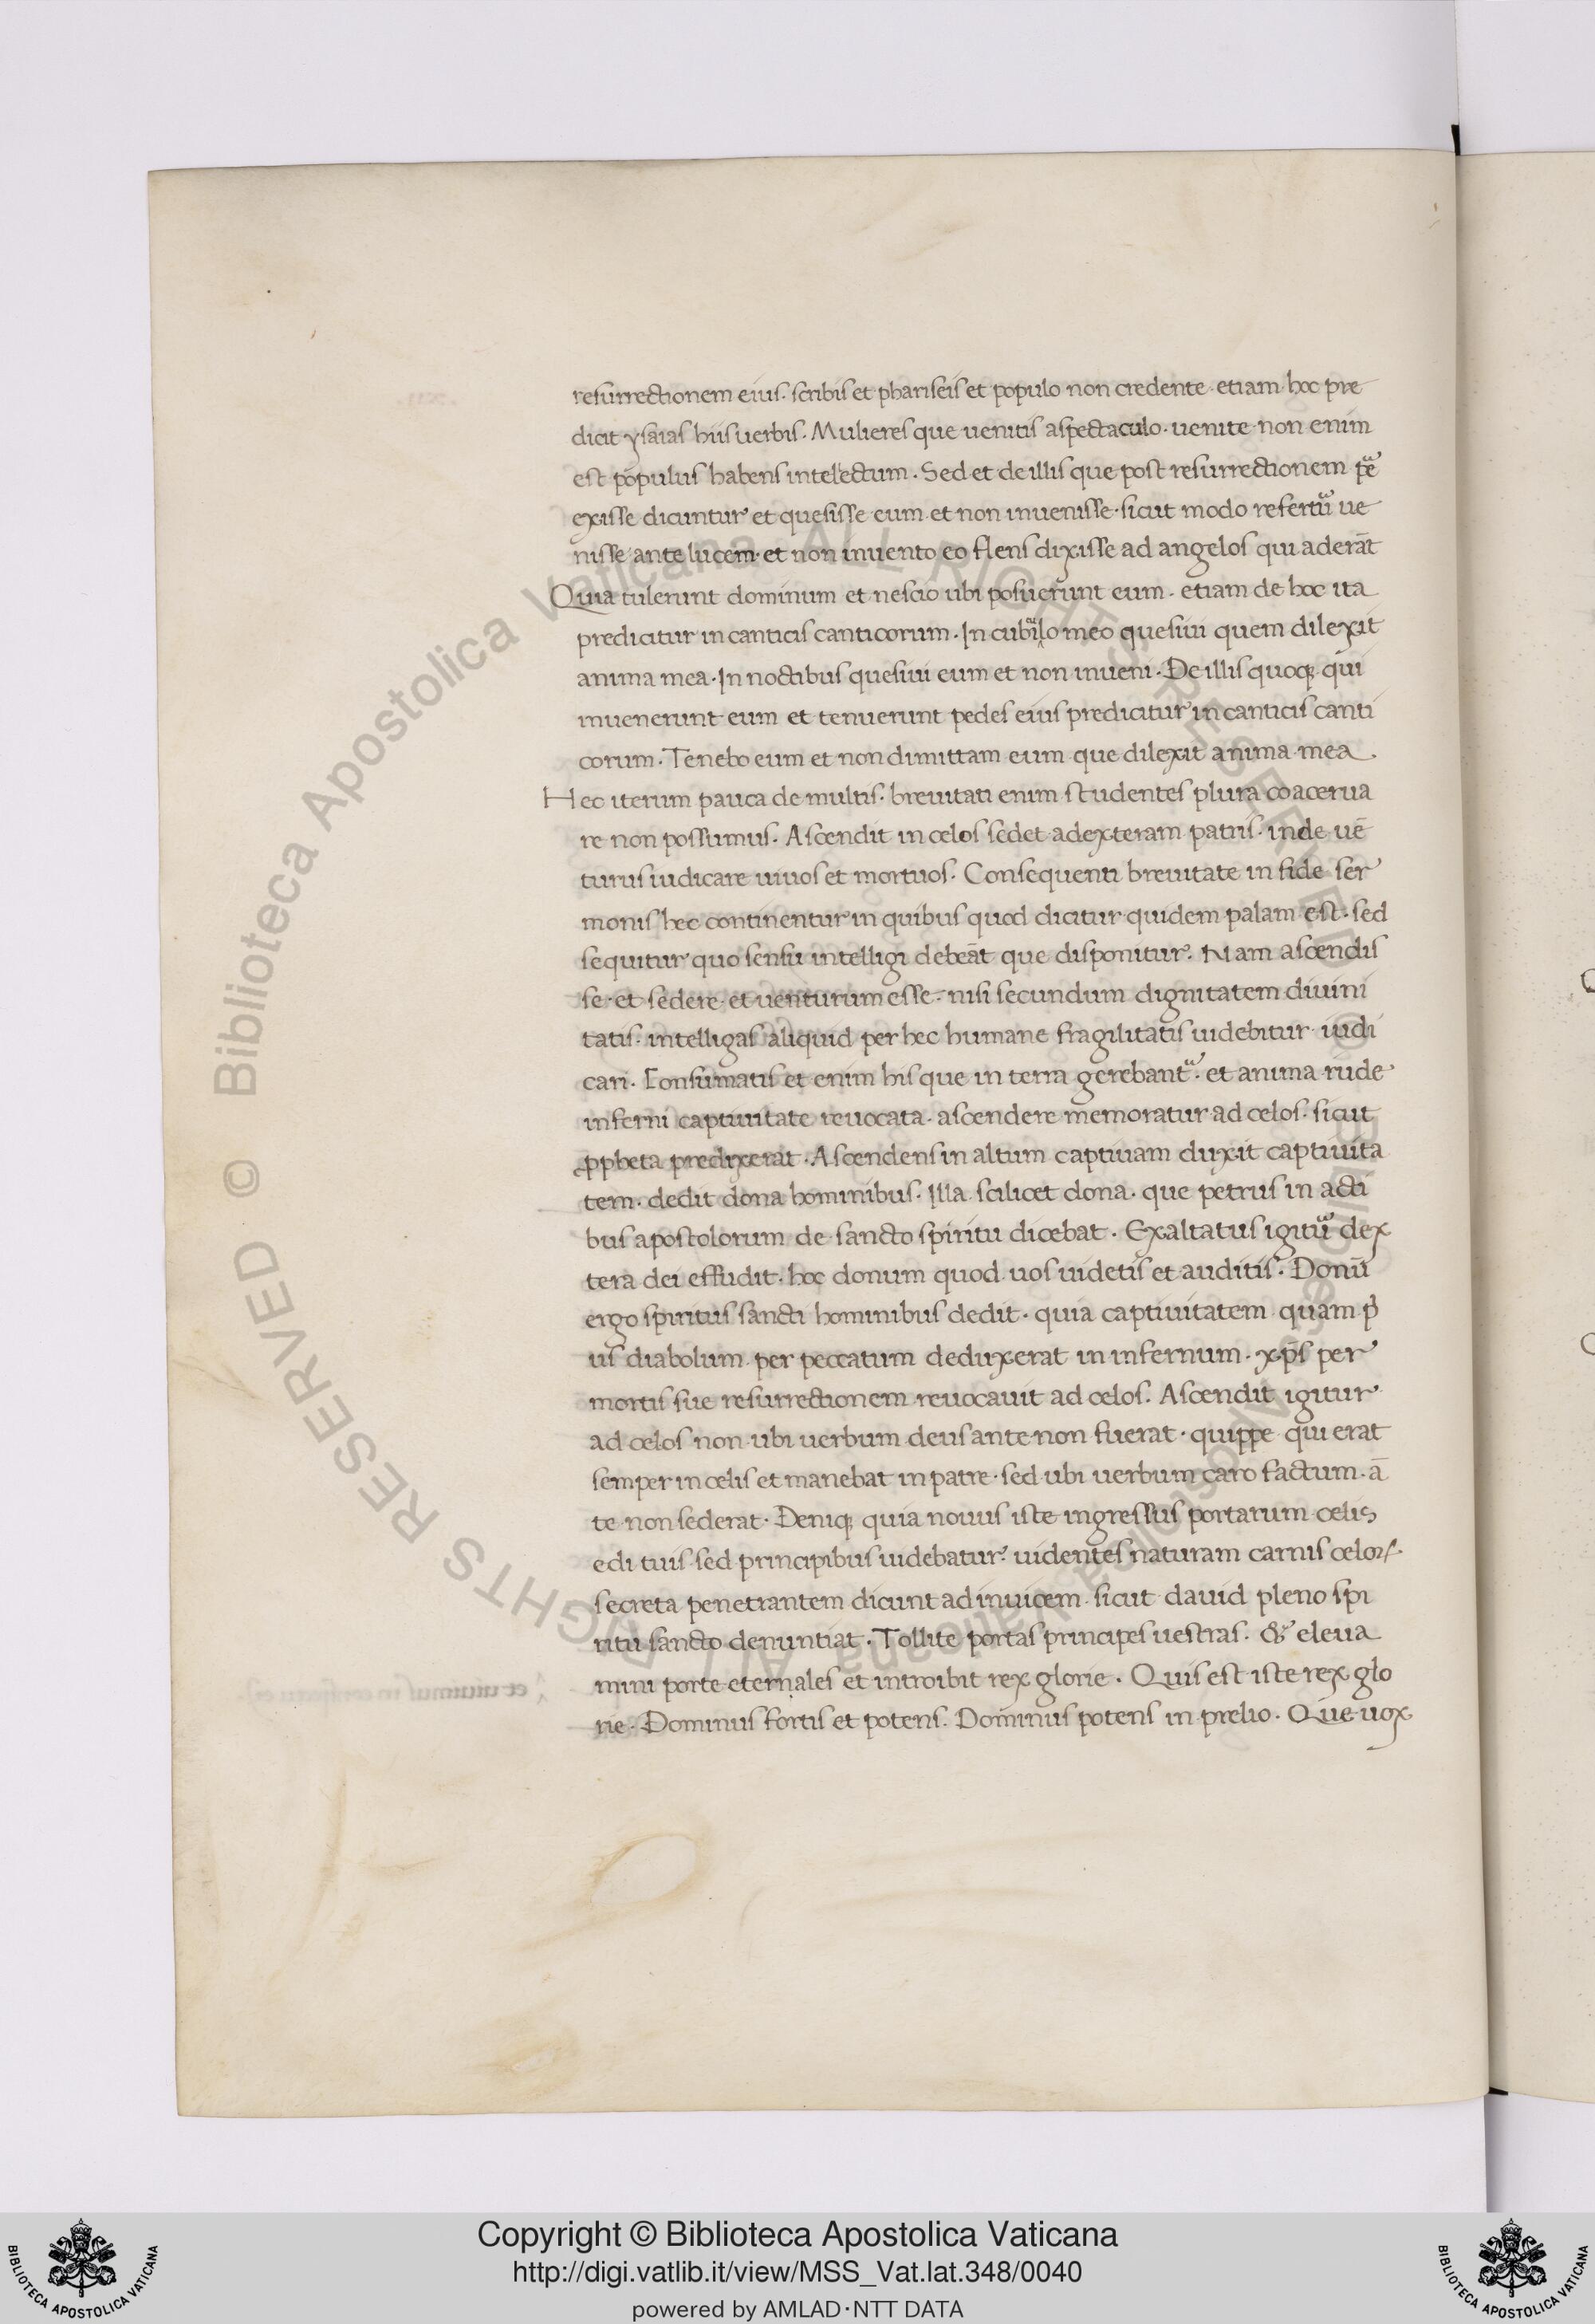 resurrectionem eius. scribis et phariseis et populo non credente. etiam hoc pre
dicit ysaias hiis uerbis. Mulieres que uenitis aspectaculo. uenite non enim
est populus habens intelectum. Sed et de illis que post resurrectionem
exisse dicuntur et quesisse eum et non inuenisse. sicut modo refertur ue
nisse ante lucem. et non inuento eo flens dixisse ad angelos qui aderāt
Quia tulerunt dominum et nescio ubi posuerunt eum. etiam de hoc ita
predicitur in canticis canticorum. In cubilo meo quesiui quem dilexit
anima mea. In noctibus quesiui eum et non inueni. De illis quoq; qui
inuenerunt eum et tenuerunt pedes eius predicitur in canticis canti
corum. Tenebo eum et non dimittam eum que dilexit anima mea.
Hec iterum pauca de multis. breuitati enim studentes plura coacerua
re non possumus. Ascendit in celos sedet adexteram patris. inde uē
turus iudicare uiuos et mortuos. Consequenti breuitate in fide ser
monis hec continentur in quibus quod dicitur quidem palam est. sed
sequitur quo sensu intelligi debeāt que disponitur. Nam ascendis
se. et sedere. et uenturum esse. nisi secundum dignitatem diuini
tatis. intelligas aliquid per hec humane fragilitatis uidebitur iudi
cari. Consumatis et enim his que in terra gerebant. et anima rude
inferni captiuitate reuocata. ascendere memoratur ad celos. sicut
ppheta predixerat. Ascendens in altum captiuam duxit captiuita
tem. dedit dona hominibus. Illa scilicet dona. que petrus in acti
bus apostolorum de sancto spiritu dicebat. Exaltatus igitur dex
tera dei effudit. hoc donum quod uos uidetis et auditis. Donū
ergo spiritus sancti hominibus dedit. quia captiuitatem quam p
us diabolum per peccatum deduxerat in infernum. xp̄s per
mortis sue resurrectionem reuocauit ad celos. Ascendit igitur
ad celos non ubi uerbum deus ante non fuerat. quippe qui erat
semper in celis et manebat in patre. sed ubi uerbum caro factum. ā
te non sederat. Deniq; quia nouus iste ingressus portarum celis
edi tuis. sed principibus uidebatur. uidentes naturam carnis celoꝝ
secreta penetrantem dicunt adinuicem. sicut dauid pleno spi
ritu sancto denuntiat. Tollite portas principes uestras. & eleua
mini porte eternales et introibit rex glorie. Quis est iste rex glo
rie. Dominus fortis et potens. Dominus potens in prelio. Que uox
Copyright © Biblioteca Apostolica Vaticana
http://digi.vatlib.it/view/MSS_Vat.lat.348/0040
powered by AMLAD·NTT DATA
BIBLIOTECA APOSTOLICA VATICANA
BIBLIOTECA APOSTOLICA VATICANA